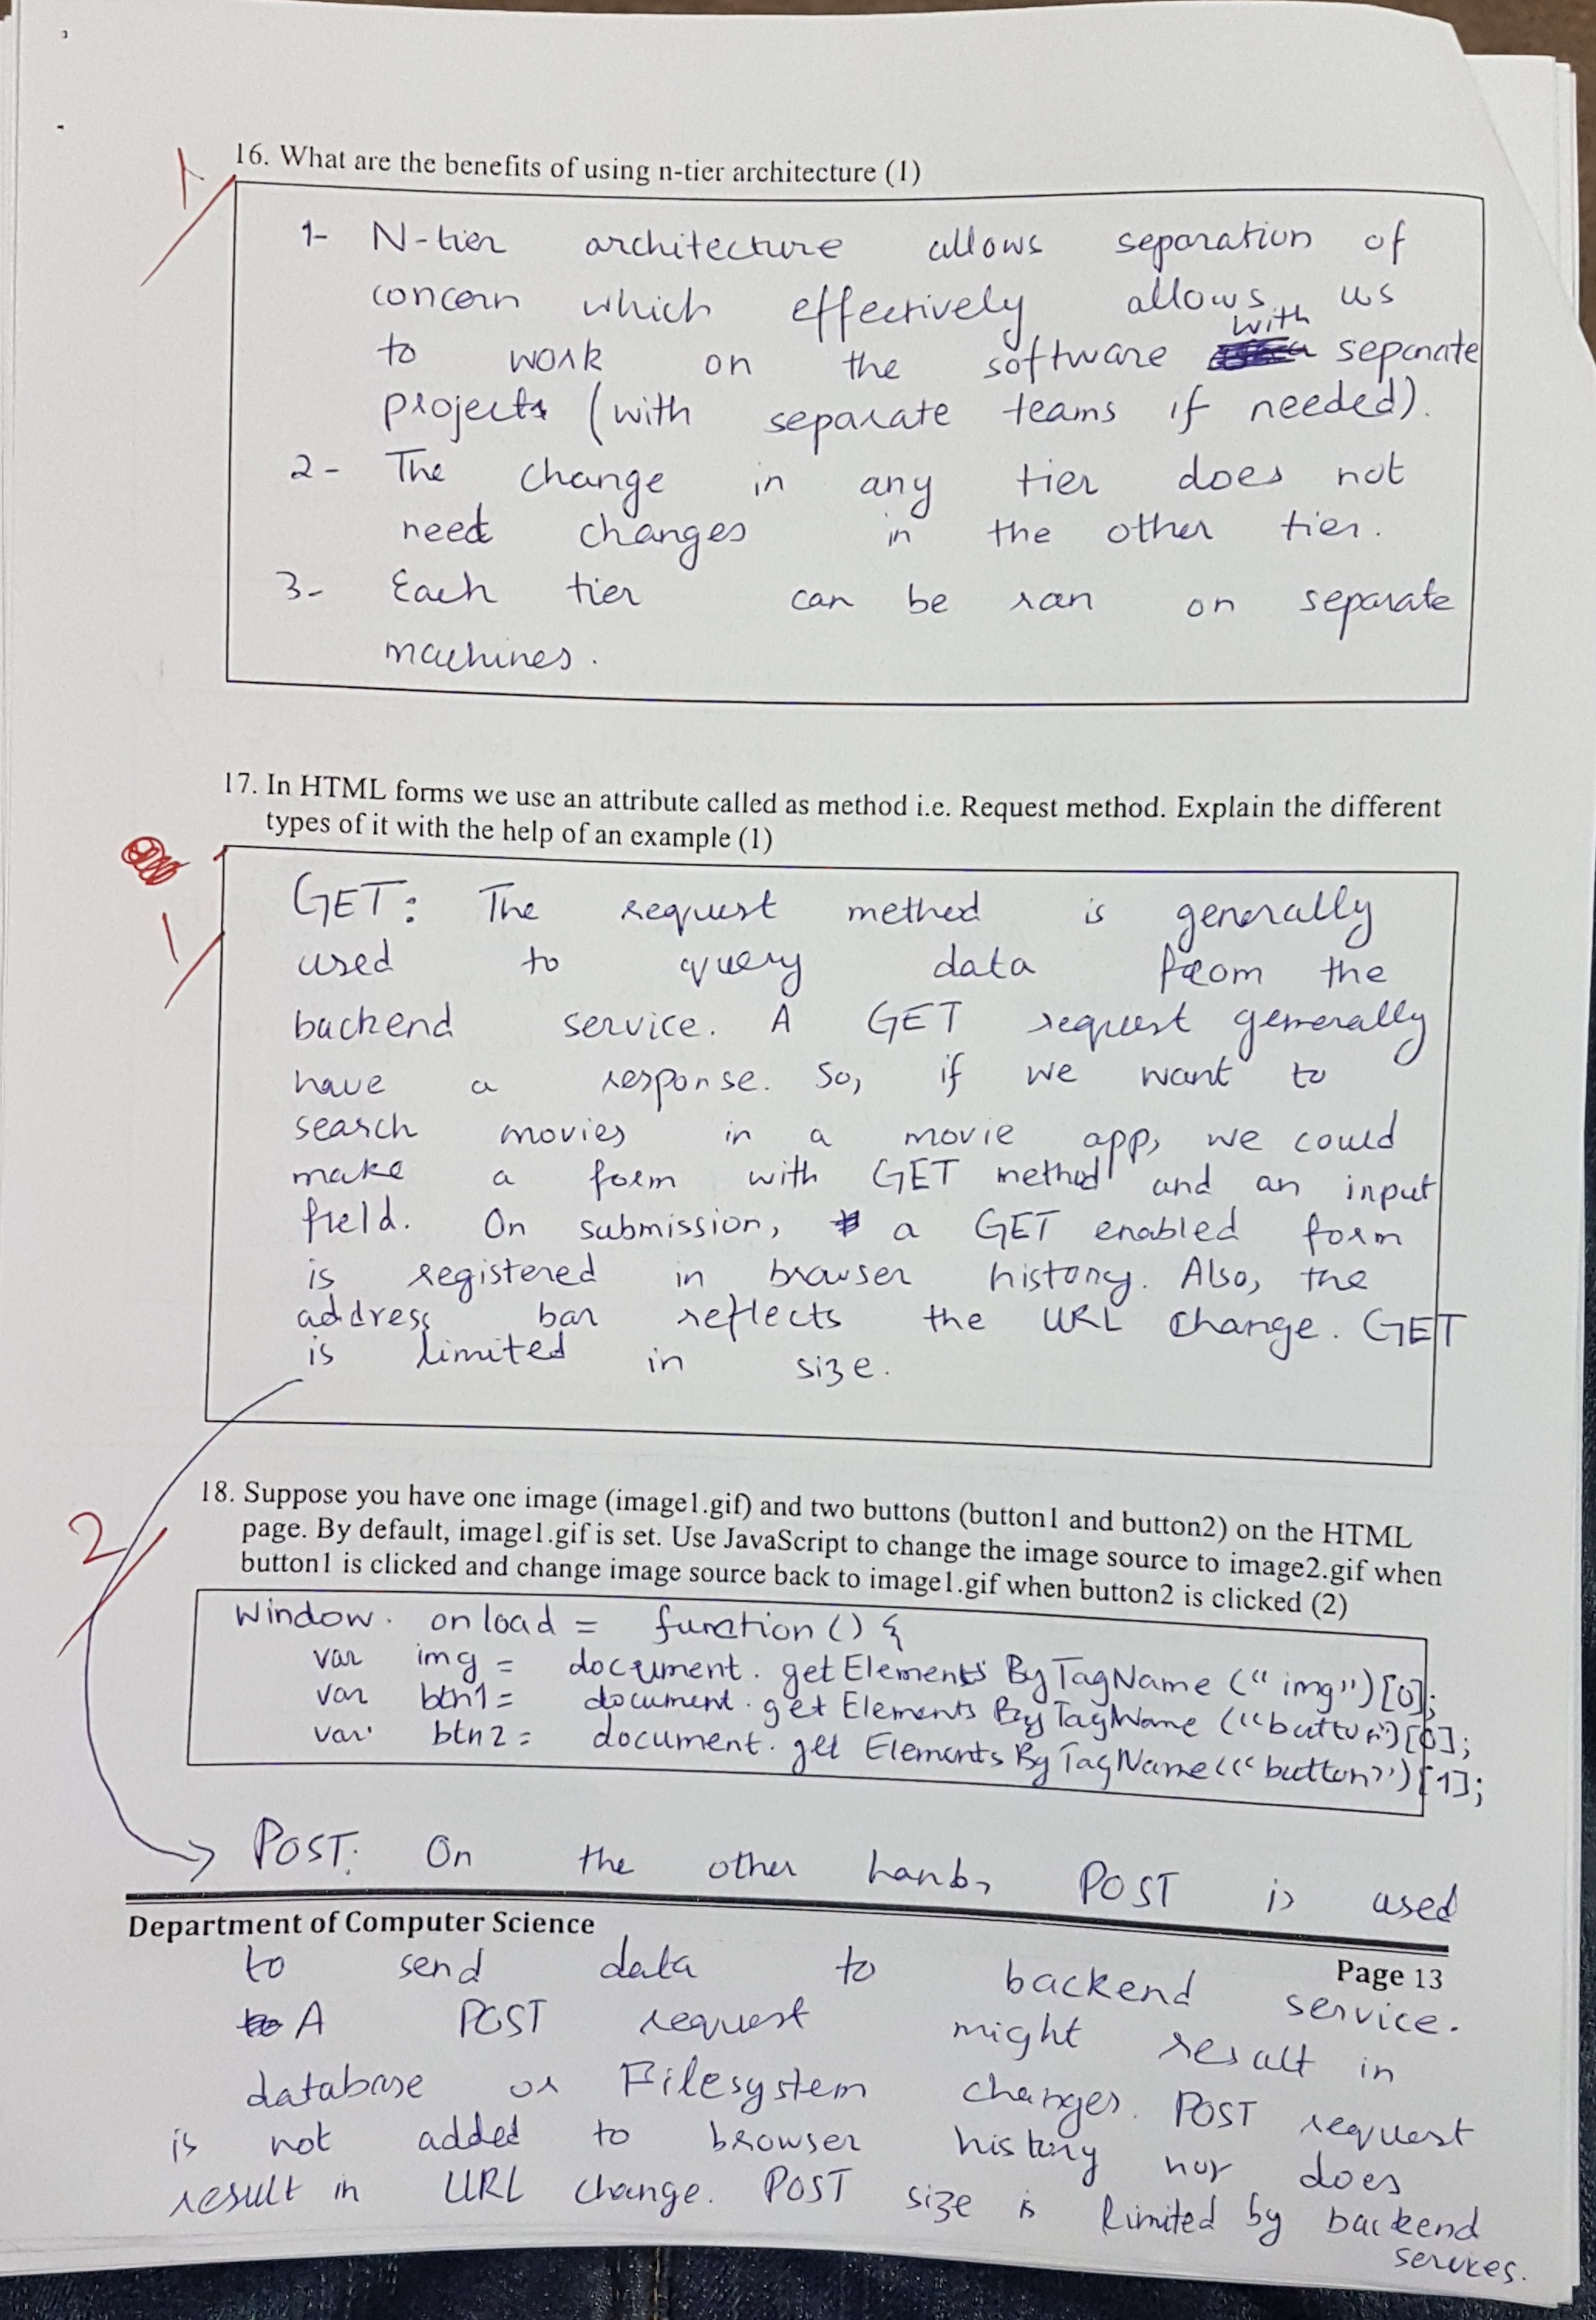 1
16. What are the benefits of using n-tier architecture (1)
1- N-tier architecture allows separation of
concern which effectively allows us
to work on the software with separate
projects (with separate teams if needed).
2- The change in any tier does not
need changes in the other tier.
3- Each tier can be ran on separate
machines.
17. In HTML forms we use an attribute called as method i.e. Request method. Explain the different
types of it with the help of an example (1)
1
GET: The request method is generally
used to query data from the
backend service. A GET request generally
have a response. So, if we want to
search movies in a movie app, we could
make a form with GET method and an input
field. On submission, a GET enabled form
is registered in browser history. Also, the
address bar reflects the URL change. GET
is limited in size.
2
18. Suppose you have one image (image1.gif) and two buttons (button1 and button2) on the HTML
page. By default, image1.gif is set. Use JavaScript to change the image source to image2.gif when
button1 is clicked and change image source back to image1.gif when button2 is clicked (2)
Window. onload = function () {
var img = document. getElements ByTagName ("img")[0];
var btn1 = document. get Elements By TagName ("button")[0];
var btn2 = document. get Elements By TagName(("button")[1];
→ POST: On the other hand, POST is used
Department of Computer Science
Page 13
to send data to backend service.
A POST request might result in
database or Filesystem changes. POST request
is not added to browser history nor does
result in URL change. POST size is limited by backend
services.